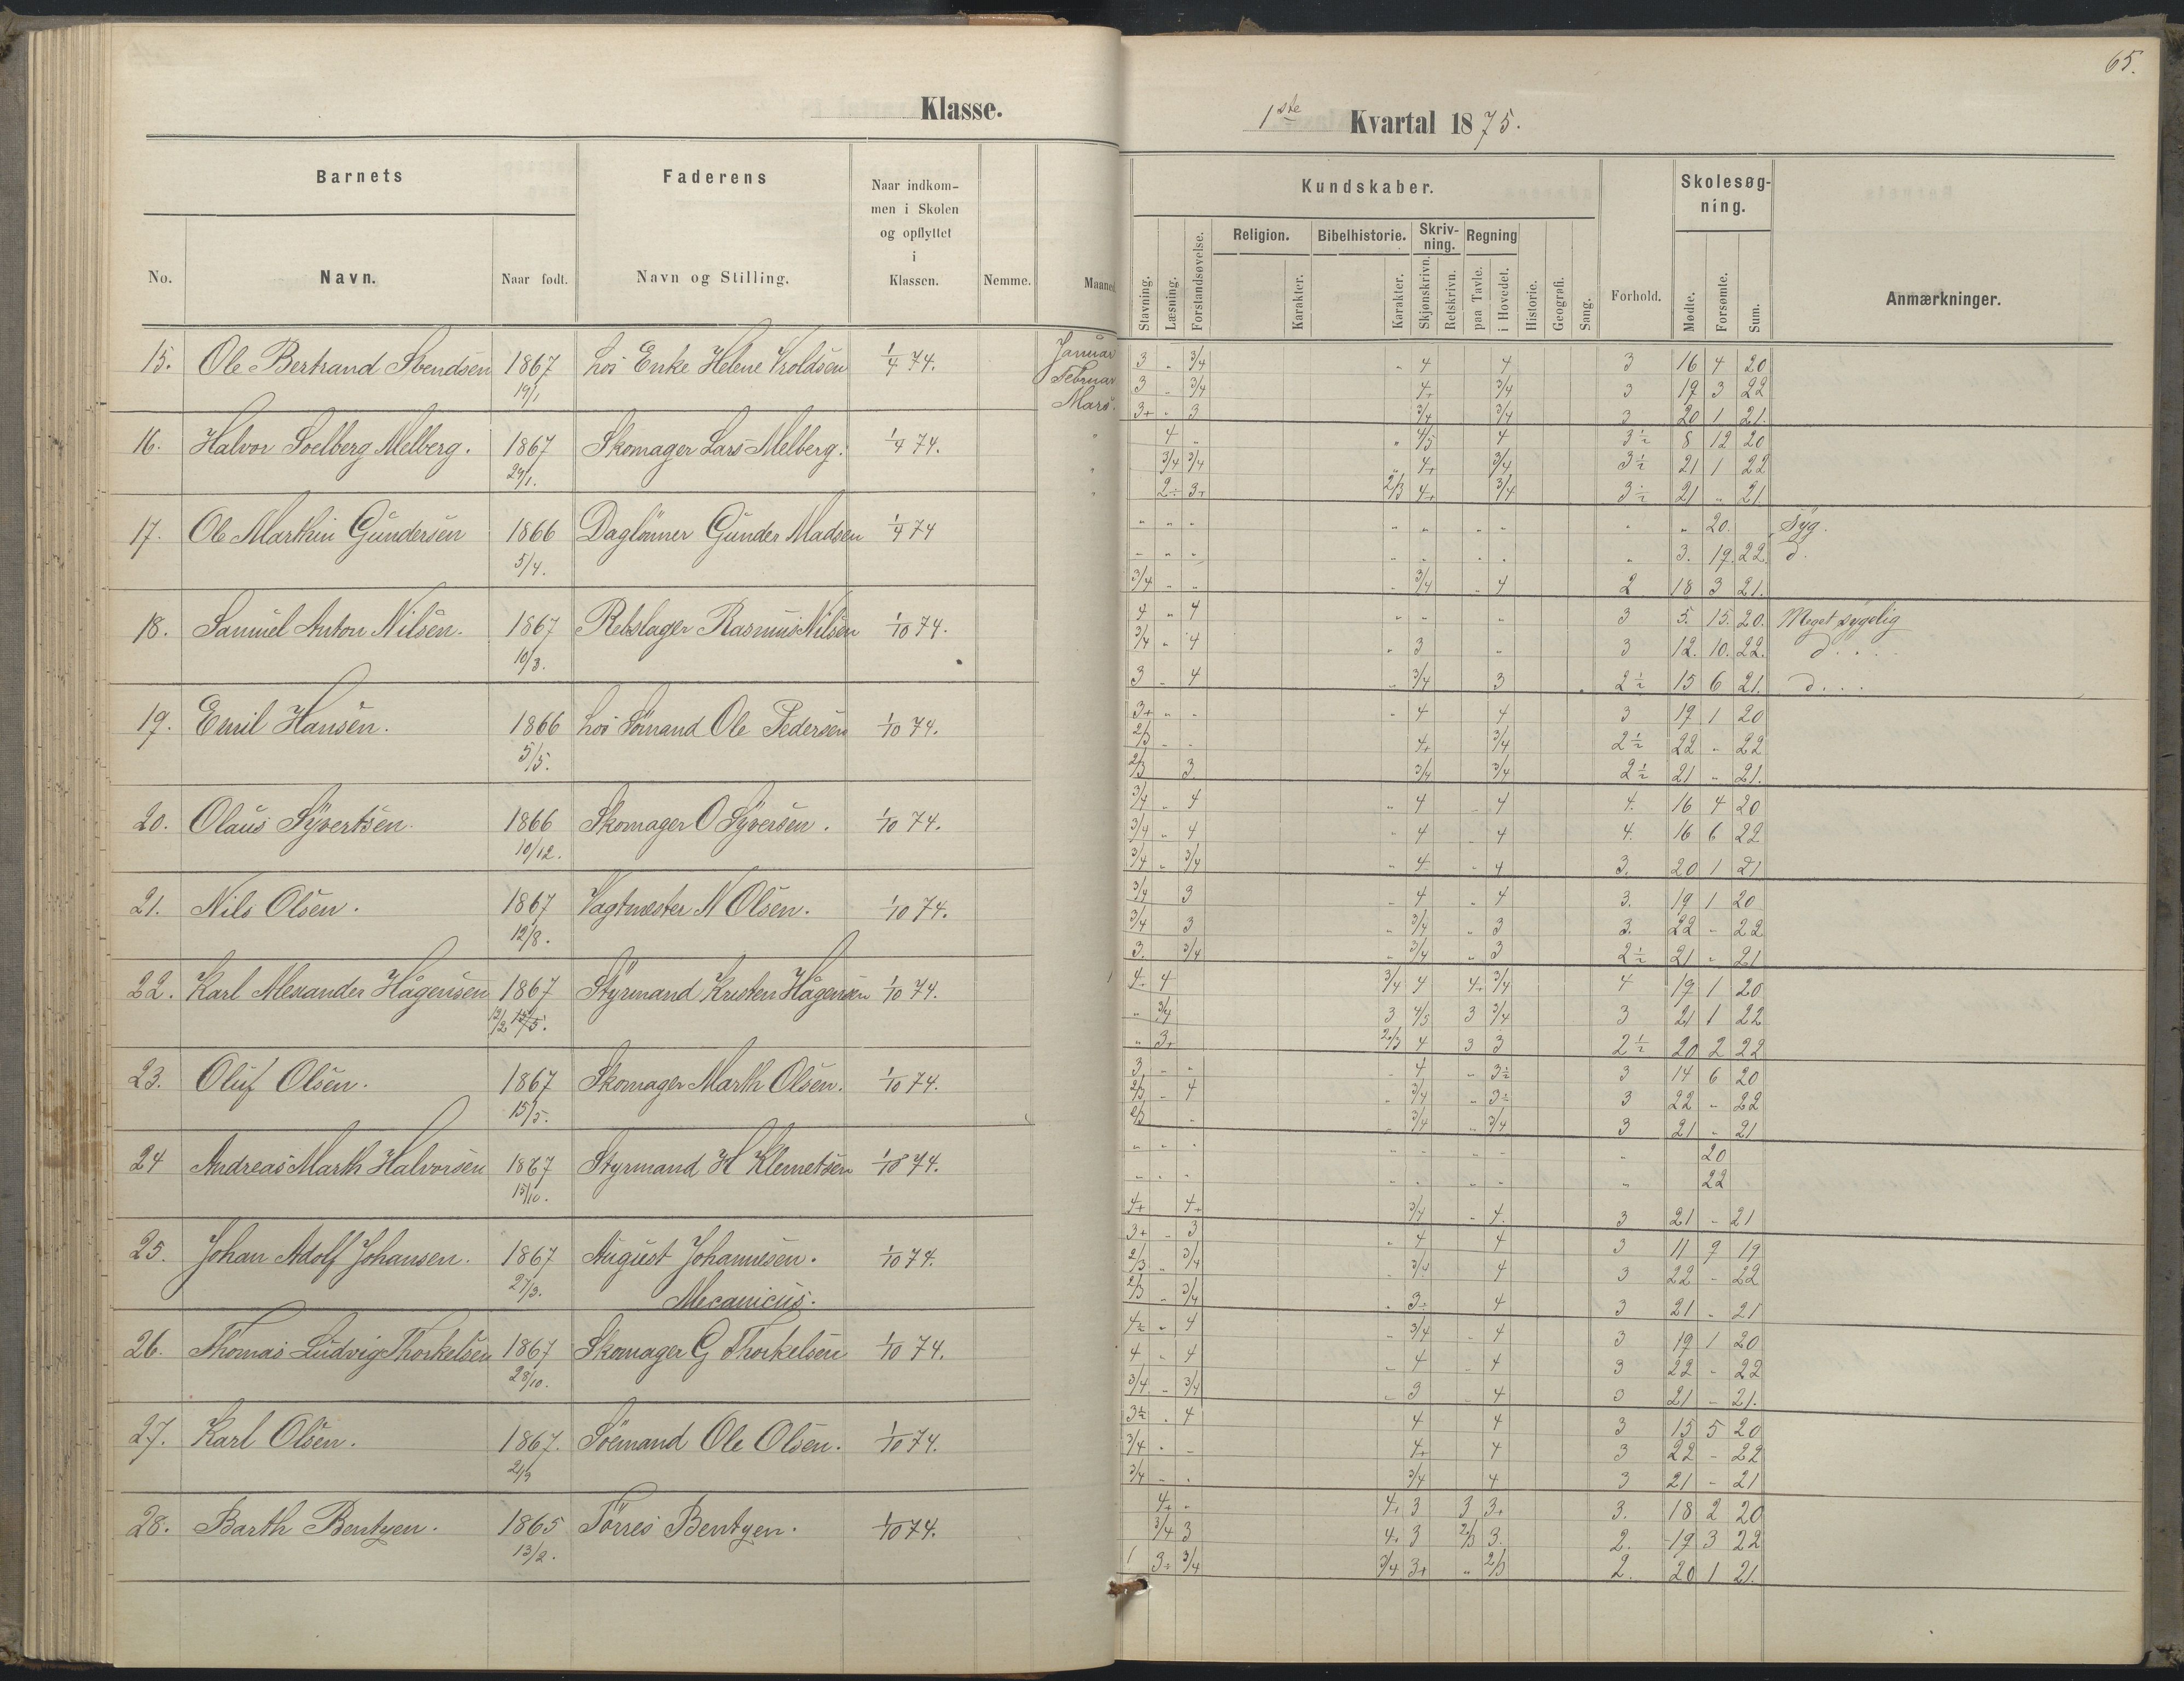 65.
Klasse.
1ste Kvartal 1875.
Barnets
Faderens
Naar indkom-
men i Skolen
og opflyttet
i
Klassen.
No.
Navn.
Naar født.
Navn og Stilling.
Nemme.
Maaned.
Kundskaber.
Skolesøg-
ning.
Stavning.
Læsning.
Forstandsøvelse.
Religion.
Karakter.
Bibelhistorie.
Karakter.
Skriv-
ning.
Skjønskrivn.
Retskrivn.
Regning
paa Tavle.
i Hovedet.
Historie.
Geografi.
Sang.
Forhold.
Mødte.
Forsømte.
Sum.
Anmærkninger.
15. Ole Bertrand Svendsen 1867 hos Enke Helene Troldsen 1/4 74. Januar 3 „ 3/4 „ 4 4 3 16 4 20
19/1 Februar 3 „ 3/4 4+ 3/4 3 19 3 22
Mars. 3+ „ 3 3/4 3/4 3 20 1 21.
16. Halvor Soelberg Melberg. 1867 Skomager Lars Melberg. 1/4 74. „ 4 „ „ 4/5 4 3½ 8 12 20
29/1. „ 3/4 3/4 „ 4+ 3/4 3½ 21 1 22
„ 2÷ 3+ 2/3 4+ 3/4 3½ 21 „ 21
17. Ole Marthin Gundersen 1866 Daglönner Gunder Madsen 1/4 74 „ „ „ „ „ „ „ „ „ 20. Syg.
5/4. „ „ „ „ „ „ „ „ 3. 19. 22. d.
3/4 „ „ „ 3/4 „ 4 2 18 3 21.
18. Samuel Anton Nilsen. 1867 Rebslager Rasmus Nilsen 1/10 74. 4 „ 4 „ „ „ 3 5. 15. 20. Meget sygelig
10/3. 3/4 „ 4 „ 3 „ 3 12. 10. 22. d. . . .
3 „ 4 „ 3/4 3 2½ 15 6 21. d. . .
19. Emil Hansen. 1866 hos Sömand Ole Pedersen 1/10 74. 3+ „ „ „ 4 4 3 19 1 20
5/5. 2/3 „ „ 4+ 3/4 2½ 22 „ 22
2/3 3 3/4 3/4 2½ 21 „ 21.
20. Olaus Syvertsen. 1866 Skomager O Syversen. 1/10 74. 3/4 „ 4 „ 4 „ 4 4. 16 4 20
10/12. 3/4 „ 4 „ 4 „ 4 4. 16 6 22
3/4 „ 3/4 „ 4 „ 4 3. 20 1 21
21. Nils Olsen. 1867 Vagtmester N Olsen. 1/10 74. 3/4 3 „ 4 „ 4 3. 19 1 20
12/8. 3/4 3 „ 3/4 „ 3 3. 22 „ 22
3. 3/4 „ 3/4 „ 3 2½ 21 „ 21
22. Karl Alexander Hågensen 1867 Styrmand Kristen Hågensen 1/10 74. 4 3/4 4 4+ 3/4 4 19 1 20
12/2 „ 3/4 3 4/5 3 3/4 3 21 1 22
„ 3+ 2/3 4 3 3 2½ 20 2 22
23. Oluf Olsen. 1867 Skomager Marth Olsen. 1/10 74. 3 „ „ „ 4 „ 3½ 3 14 6 20
15/5. 2/3 „ 4 „ 3/4 „ 3÷ 3 22 „ 22
2/3 „ „ 3/4 „ 3/4 3 21 „ 21
24 Andreas Marth Halvorsen 1867 Styrmand H Klemetsen 1/10 74. „ „ „ „ „ „ „ „ 20
15/10. „ „ „ „ „ „ „ „ 22
4+ 4+ 3/4 „ 4. 3 21 „ 21
25. Johan Adolf Johansen. 1867 August Johannesen. 1/10 74. 3+ „ 3 „ 4 4 3 11 9 19
27/3. Mecanicus. 2/3 „ 3/4 „ 3/4 4 3 22 „ 22
2/3 „ 3/4 „ 3÷ 4 3 21 „ 21
26. Thomas Ludvig Thorkelsen 1867 Skomager G Thorkelsen 1/10 74. 4½ „ 4 „ 3/4 „ 4 3 19 1 20
28/10. 4 „ 4 „ 4 „ 4 3 22 „ 22
3/4 „ 3/4 „ 3 „ 4 3 21 „ 21.
27. Karl Olsen. 1867. Söemand Ole Olsen. 1/10 74. 3½ „ 4 4 4 3 15 5 20
21/9 3/4 „ „ 4+ 4 3 22 „ 22
3/4 „ „ 3/4 4 3 21 „ 21
28. Barth Bentzen. 1865 Törres Bentzen. 1/10 74. 4+ „ 4+ 3 3 3+ 3. 18 2 20
13/2. 3/4 3 4+ 3 2/3 3. 2. 19 3 22
1 3÷ 3/4 3/4 3+ „ 2/3 2. 20 1 21.